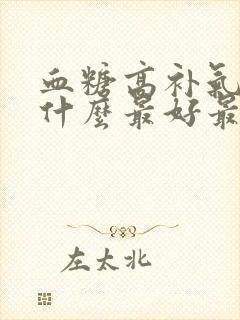 血糖高补氣
什麼最好最
左太北